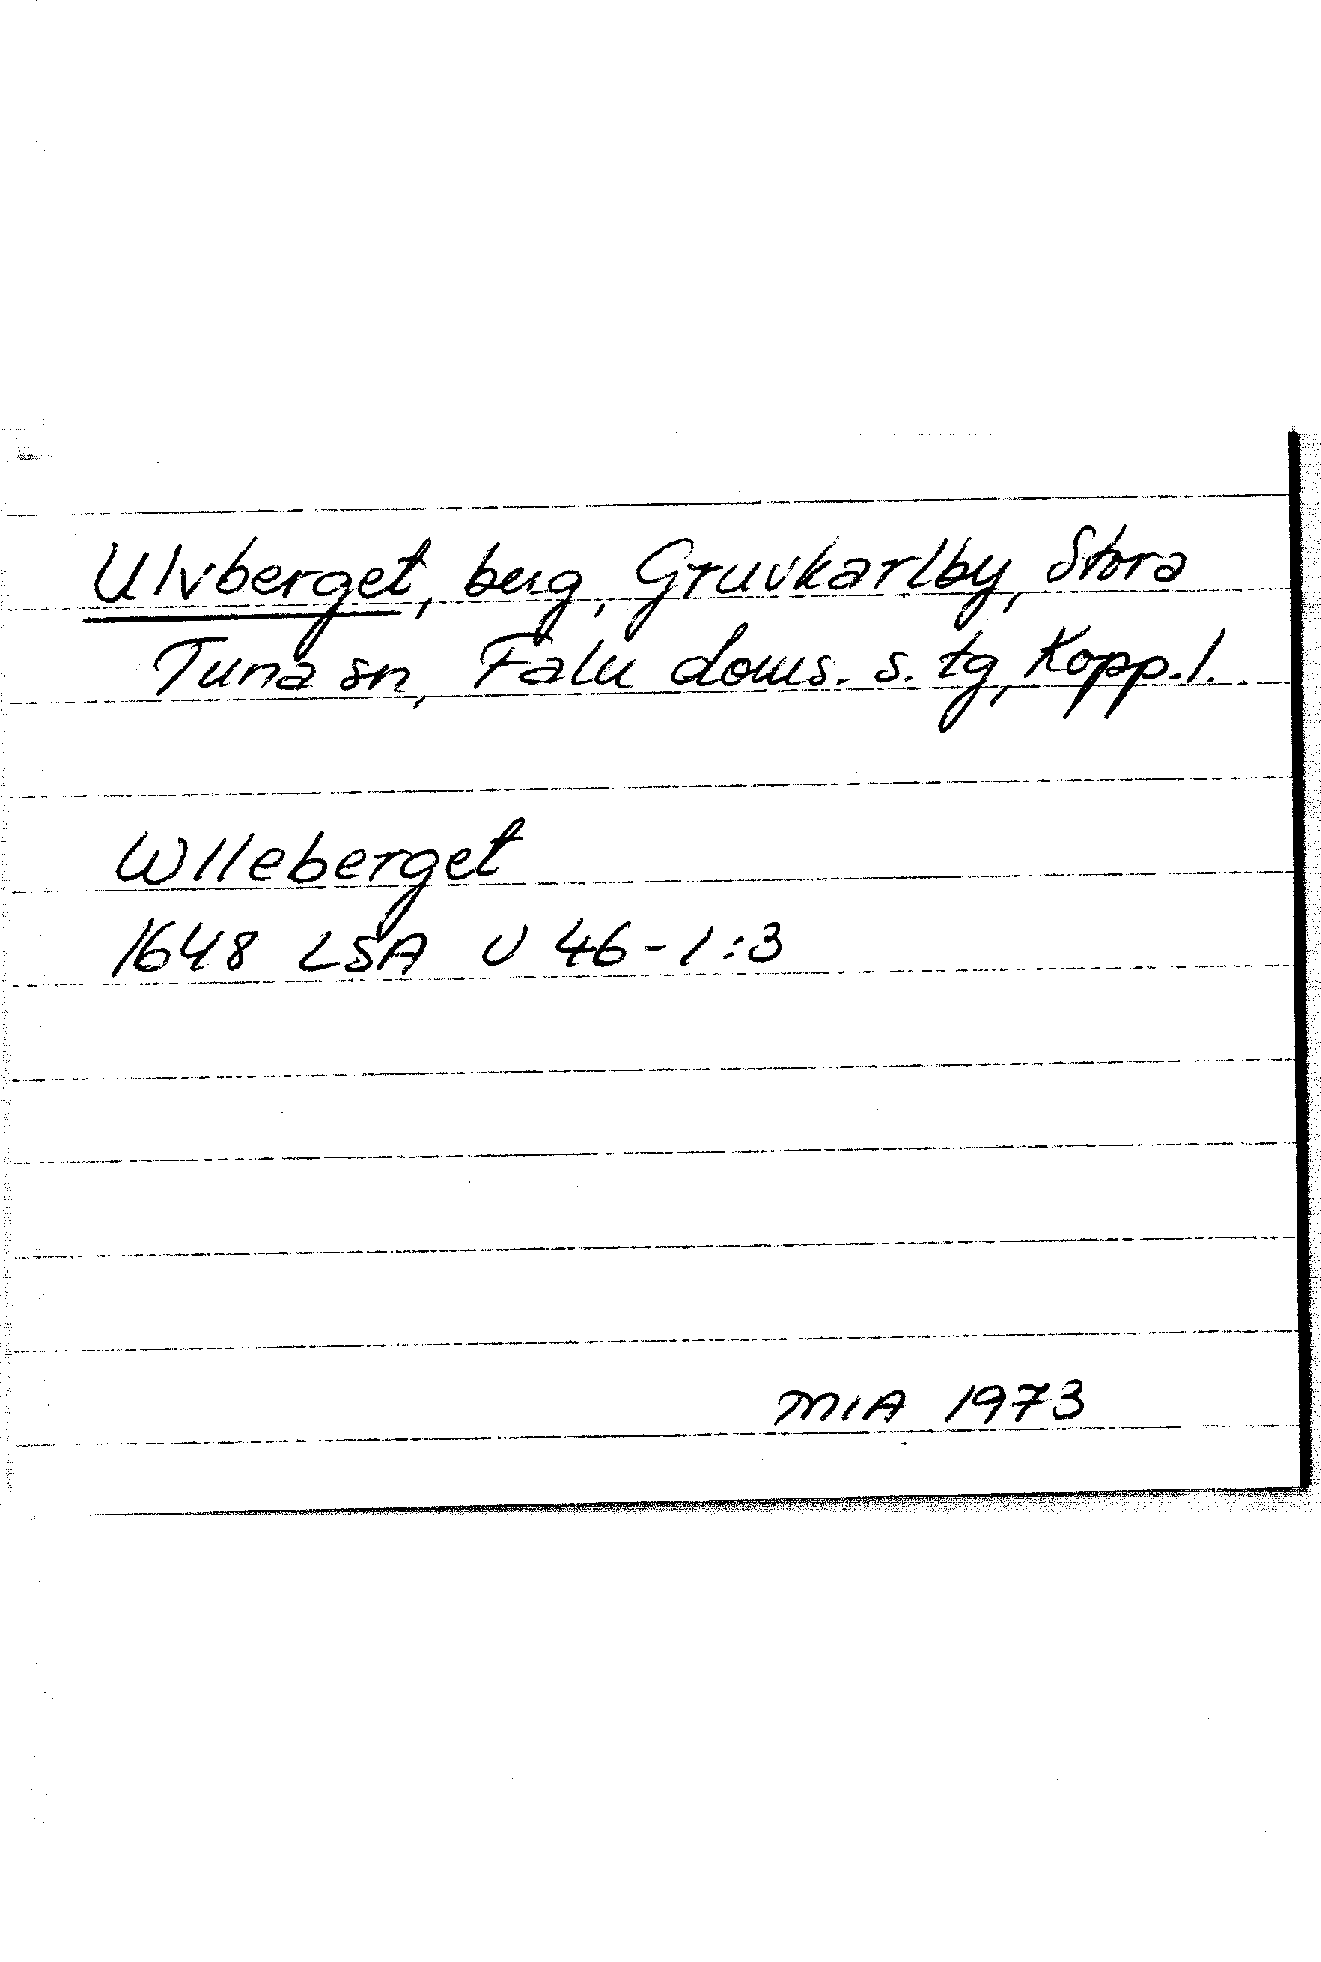 Ulvberget, berg, Gruvkarlby, Stora
Tuna sn, Falu doms. s. tg, Kopp. l.
Wlleberget
1648 LSA U 46-1:3
MIA 1973